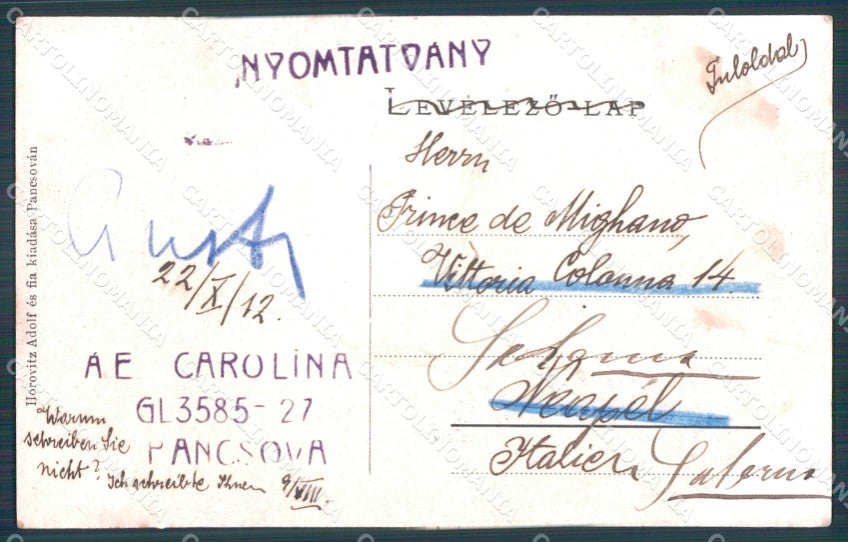 NYOMTATVANY
Tuloldal
LEVELEZŐ-LAP
Horovitz Adolf és fia kiadása Pancsován
Herrn
Prince de Mighano,
Vittoria Colonna 14.
22/X/12.
Neapel
Italien
Salerno
AE CAROLINA
GL3585-27
PANCSOVA
Warum
schreiben Sie
nicht?
Ich schreibte Ihnen 9/VIII.
CARTOLINOMANIA